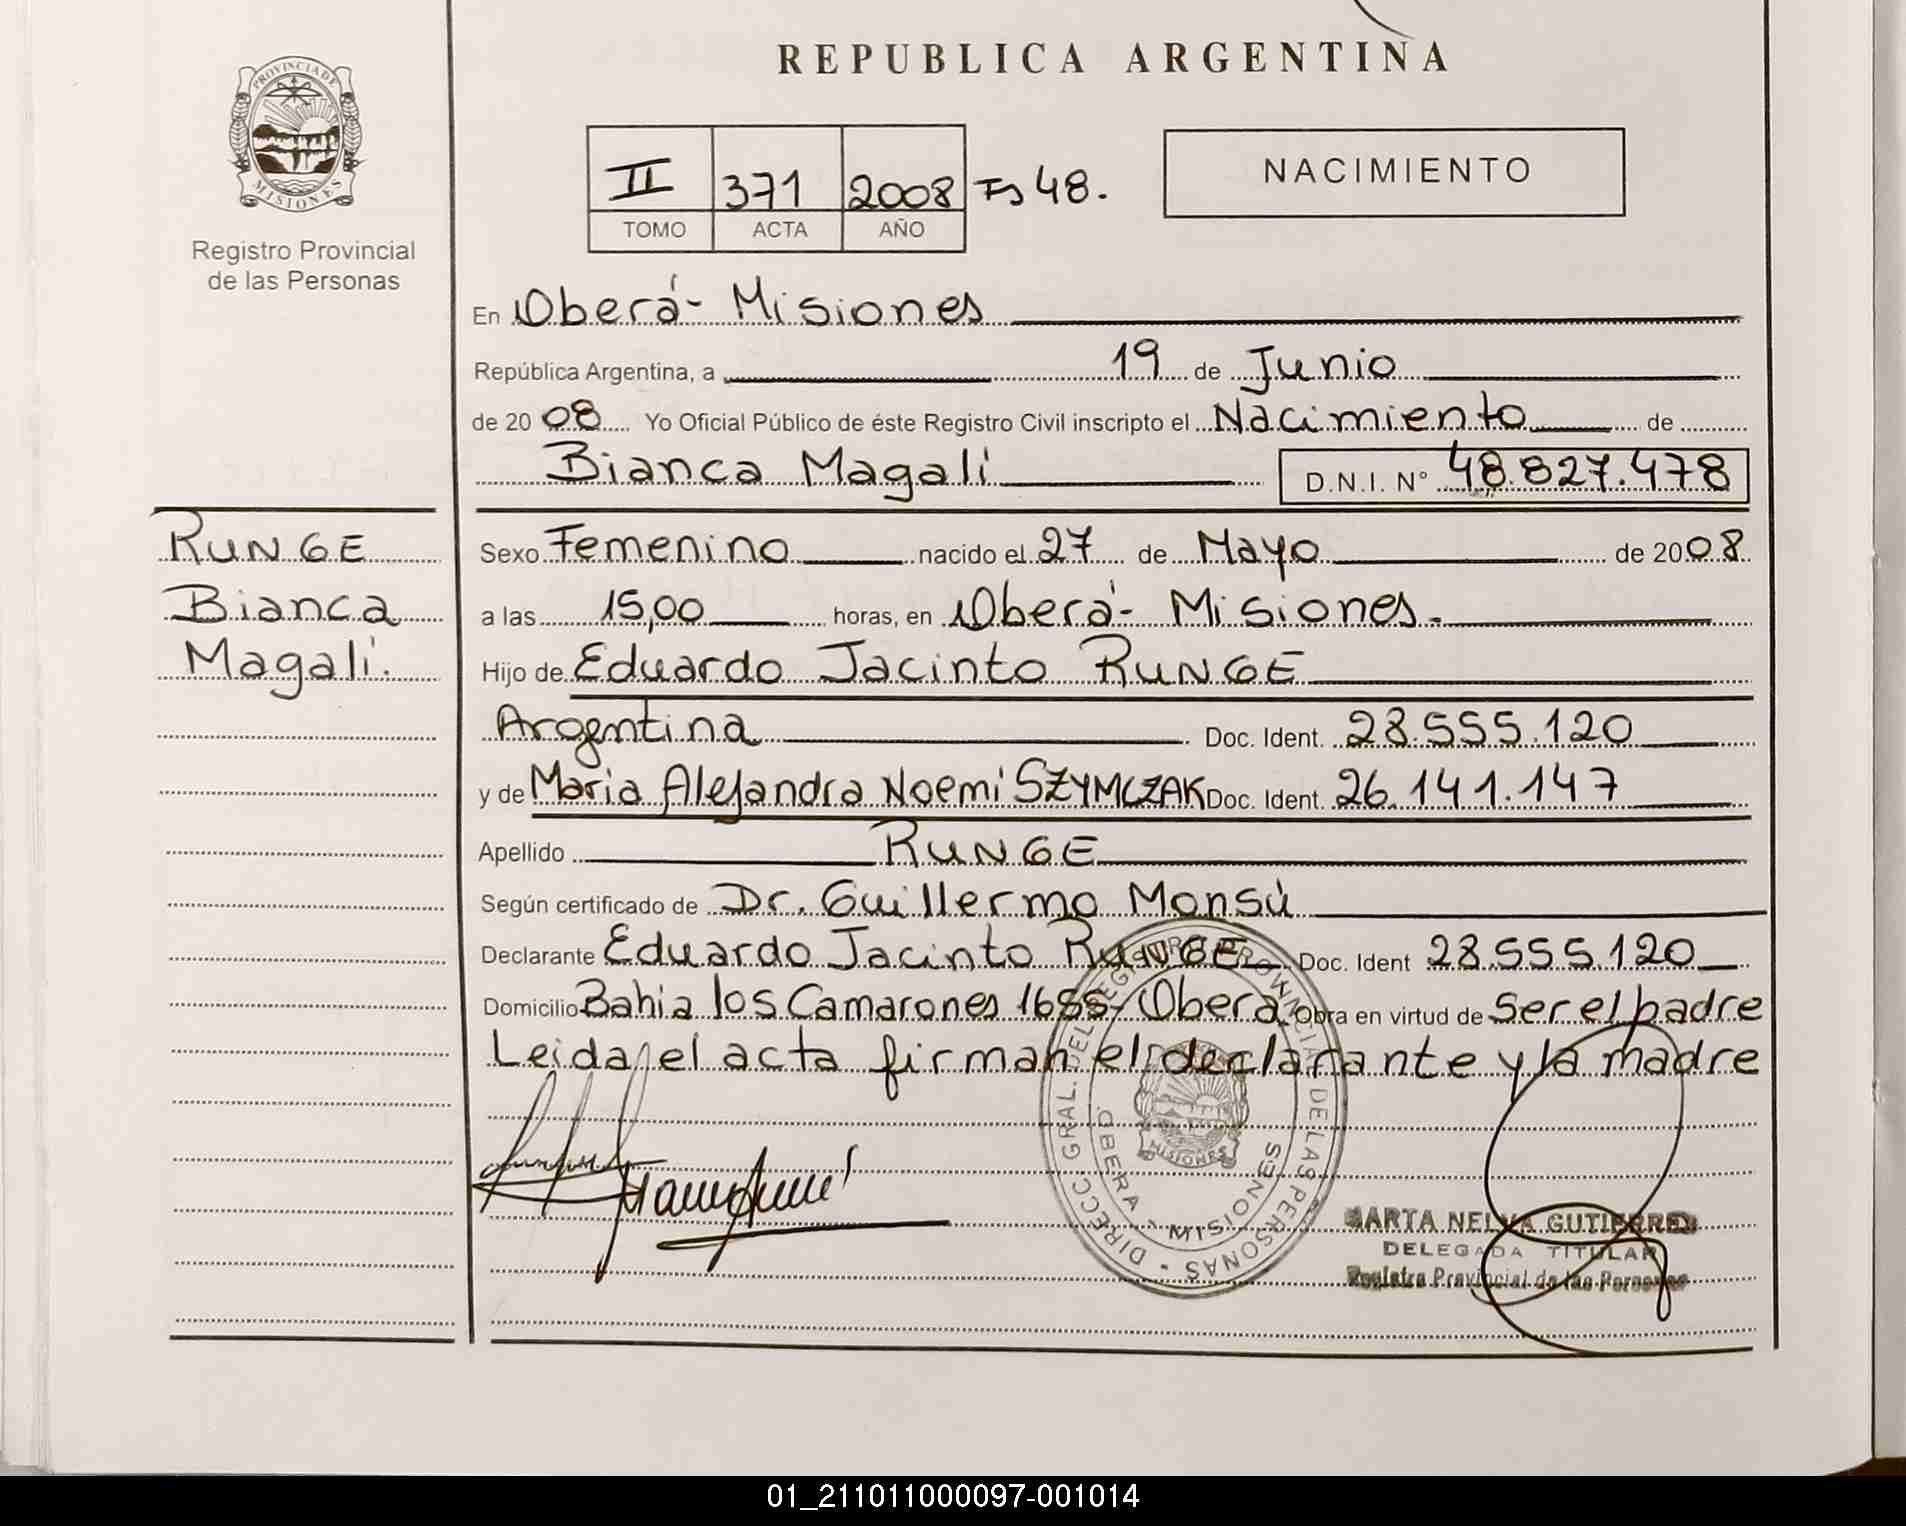 REPUBLICA ARGENTINA
PROVINCIA DE
MISIONES
Registro Provincial
de las Personas
II 371 2008 Fs 48.
TOMO ACTA AÑO
NACIMIENTO
En Oberá - Misiones
República Argentina, a 19 de Junio
de 20 08 Yo Oficial Público de éste Registro Civil inscripto el Nacimiento de
Bianca Magalí D.N.I. N° 48.827.478
RUNGE
Bianca
Magalí.
Sexo Femenino nacido el 27 de Mayo de 2008
a las 15,00 horas, en Oberá - Misiones.
Hijo de Eduardo Jacinto RUNGE
Argentina Doc. Ident. 28.555.120
y de Maria Alejandra Noemí SZYMCZAK Doc. Ident. 26.141.147
Apellido RUNGE
Según certificado de Dr. Guillermo Monsú
Declarante Eduardo Jacinto RUNGE Doc. Ident 28.555.120
Domicilio Bahia los Camarones 1655 - Oberá. Obra en virtud de Ser el padre
Leida el acta firman el declarante y la madre
DIRECC. GRAL. DEL REGISTRO PROVINCIAL DE LAS PERSONAS
OBERA - MISIONES
MISIONES
MARTA NELVA GUTIERREZ
DELEGADA TITULAR
Registro Provincial de las Personas
01_211011000097-001014